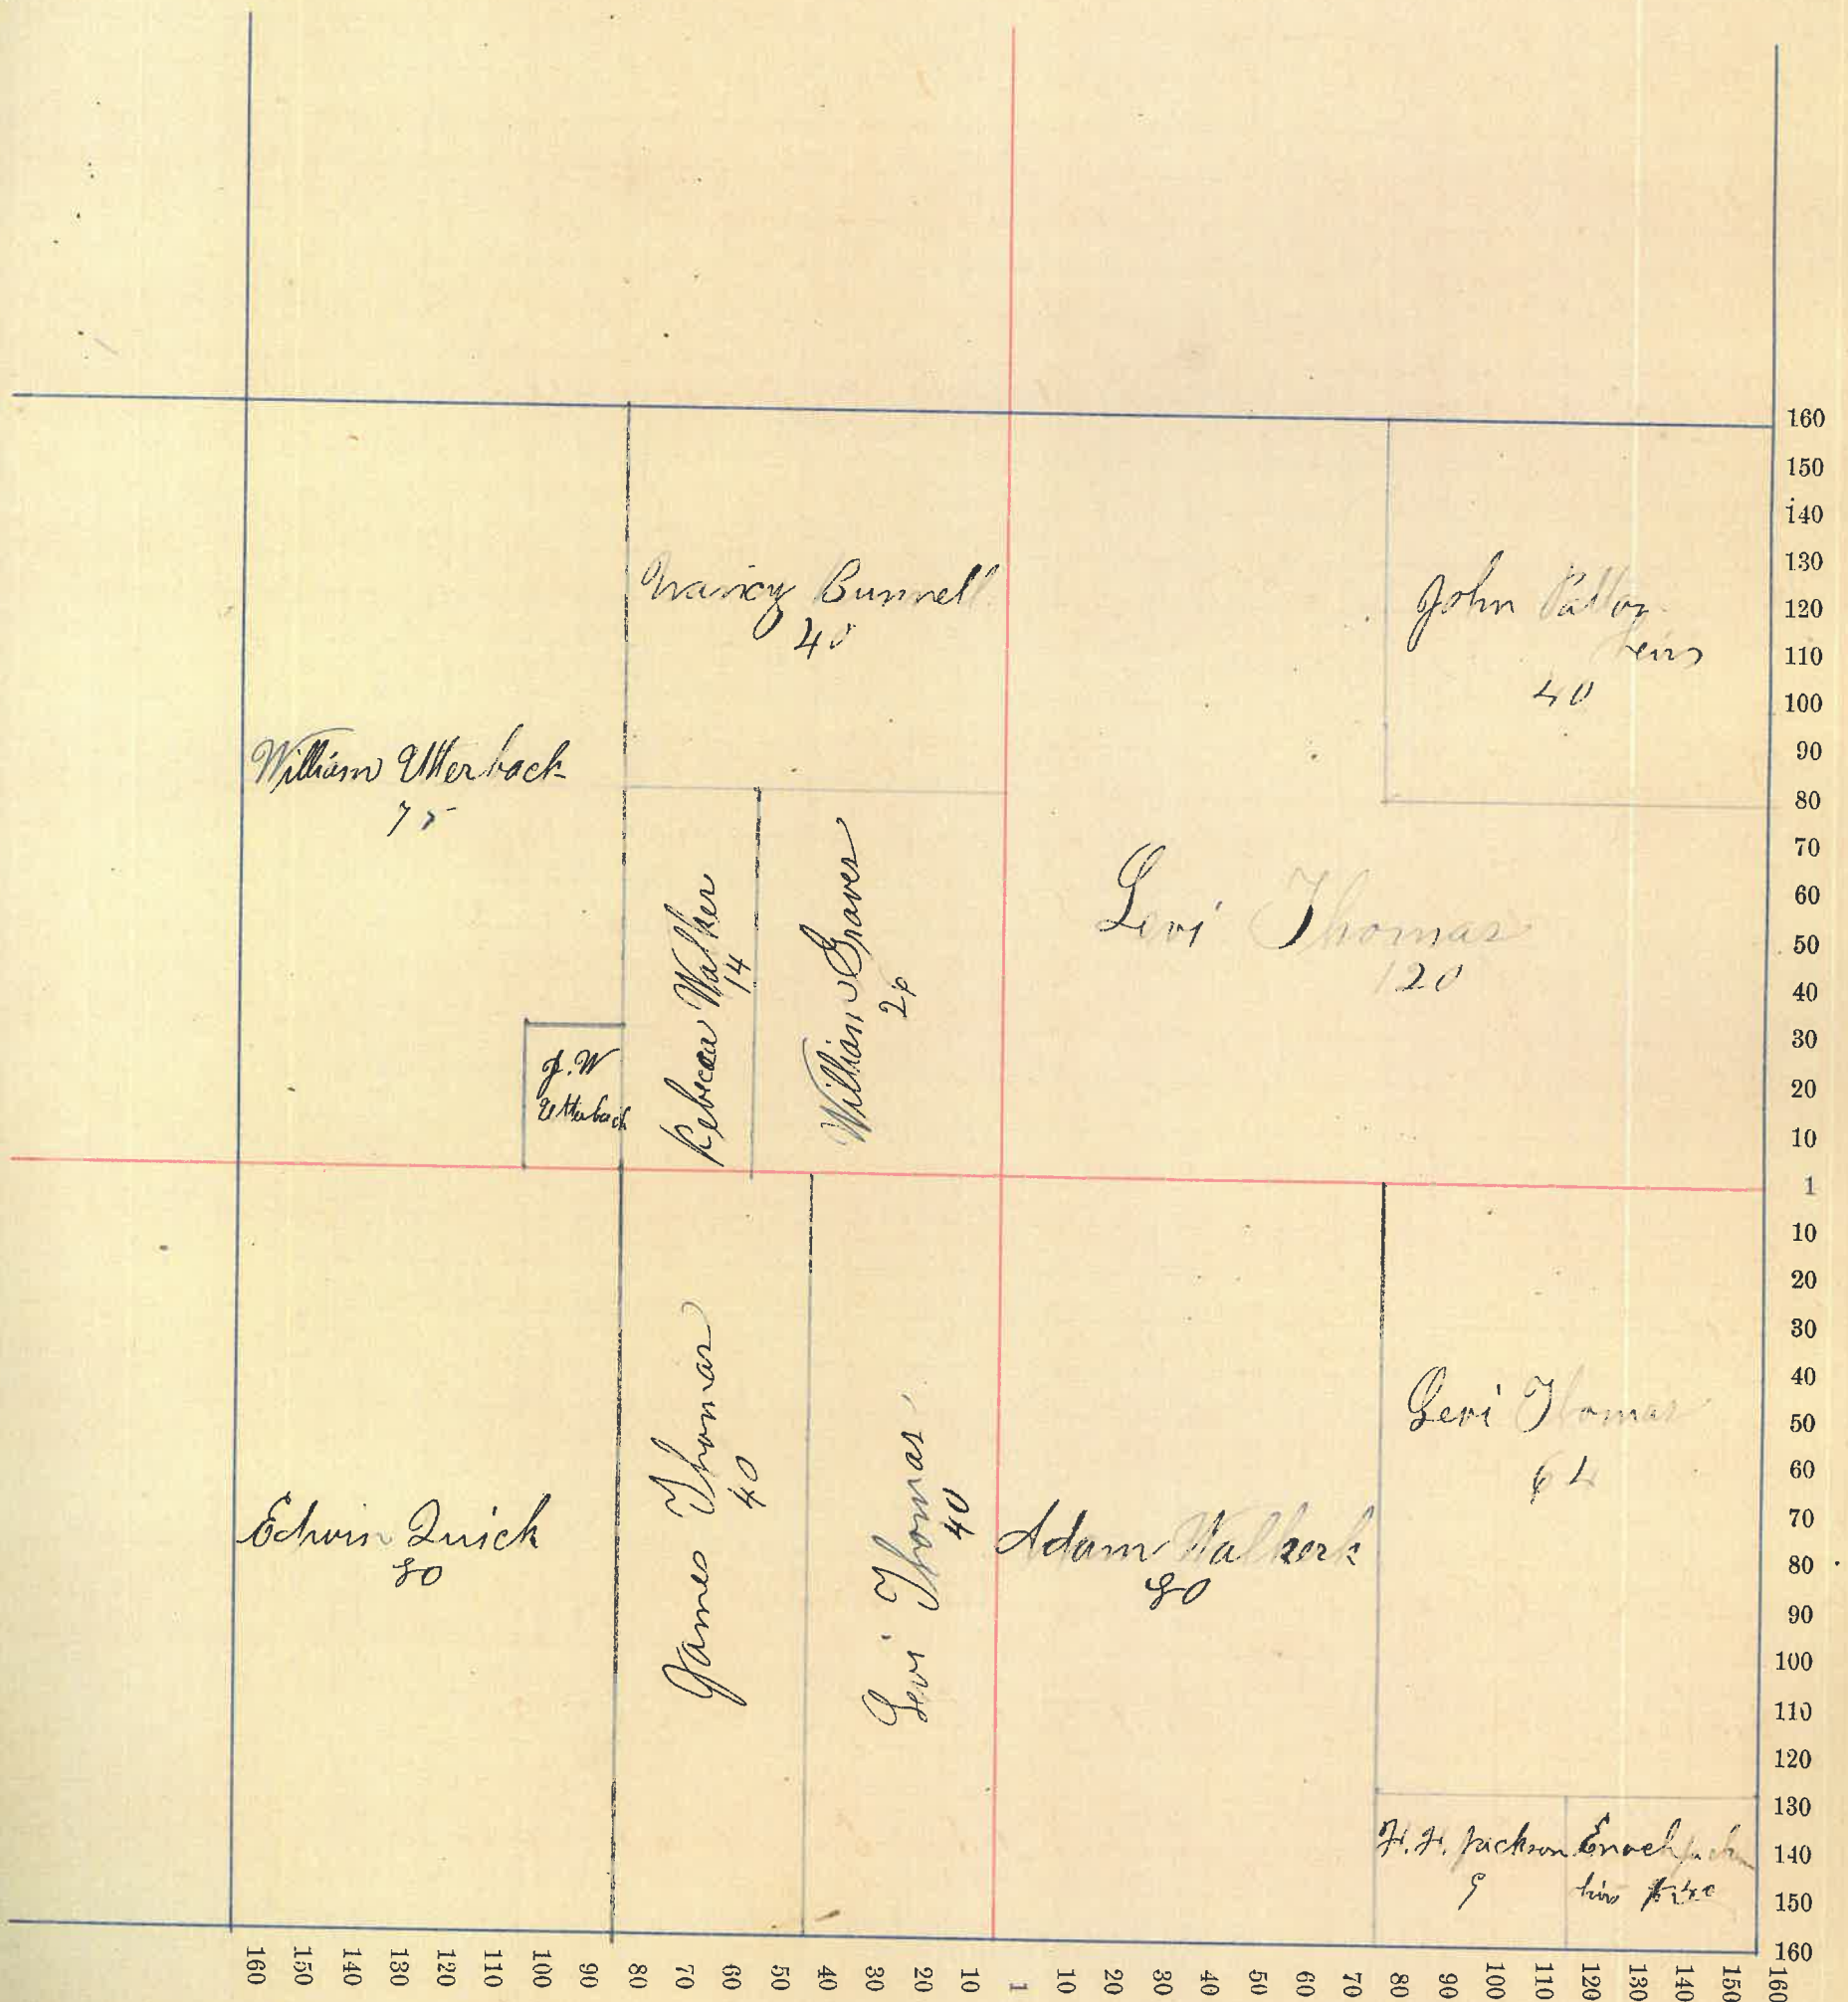 Nancy Bunnell
40
John Patton
heirs
40
William Utterback
75
Rebecca Walker
14
William Graves
26
Levi Thomas
120
J. W
Utterback
Edwin Quick
80
James Thomas
40
Levi Thomas
40
Adam Walkerk
80
Levi Thomas
64
Jackson
9
Enoch
160
150
140
130
120
110
100
90
80
70
60
50
40
30
20
10
1
10
20
30
40
50
60
70
80
90
100
110
120
130
140
150
160
160
150
140
130
120
110
100
90
80
70
60
50
40
30
20
10
1
10
20
30
40
50
60
70
80
90
100
110
120
130
140
150
160